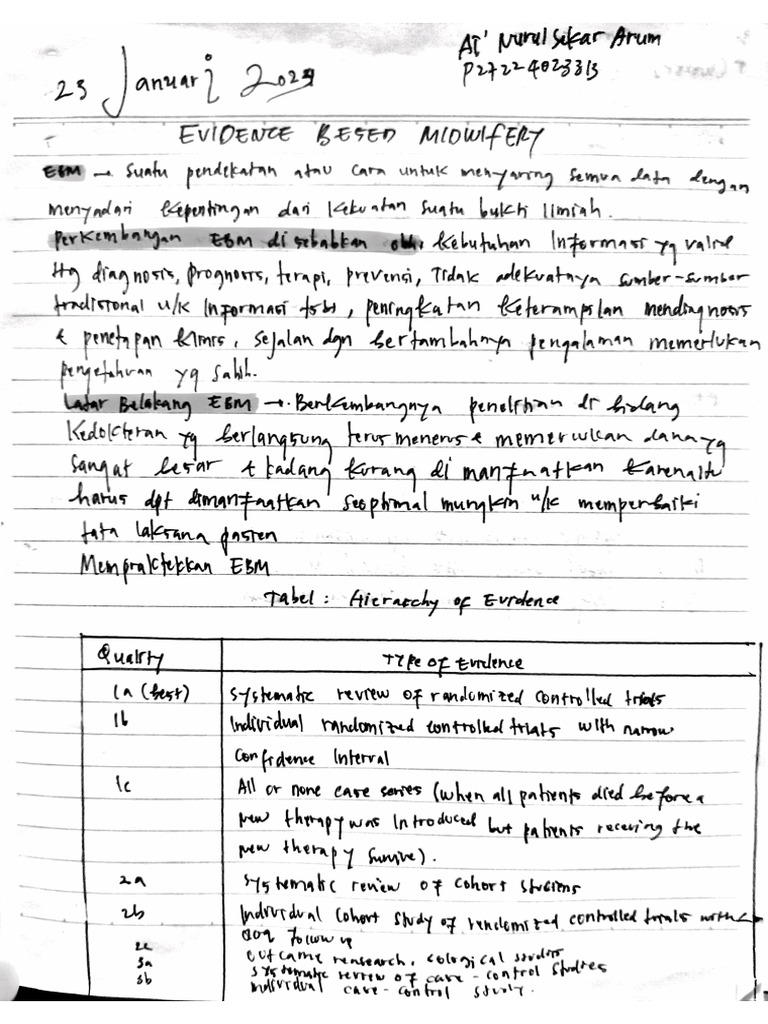 Ai' Nurul Sekar Arum
P27224023313
23 Januari 2024
EVIDENCE BESED MIDWIFERY
EBM → Suatu pendekatan atau cara untuk menyaring semua data dengan
menyadari kepentingan dari kekuatan suatu bukti Ilmiah.
Perkembangan EBM di sebabkan oleh: kebutuhan Informasi yg valid
ttg diagnosis, prognosis, terapi, prevensi, Tidak adekuatnya sumber-sumber
tradisional u/k Informasi tsb, peningkatan keterampilan mendiagnosis
& penetapan klinis, sejalan dgn bertambahnya pengalaman memerlukan
pengetahuan yg sahih.
Latar Belakang EBM → Berkembangnya penelitian di bidang
Kedokteran yg berlangsung terus menerus & memerlukan dana yg
sangat besar & kadang kurang di manfaatkan karena itu
harus dpt dimanfaatkan seoptimal mungkin u/k memperbaiki
tata laksana pasien
Mempraktekkan EBM
Tabel : Hierarchy of Evidence
Quality Type of Evidence
1a (best) Systematic review of randomized controlled trials
1b Individual randomized controlled trials with narrow
Confidence Interval
1c All or none care series (when all patients died before a
new therapy was Introduced but patients receving the
new therapy survive).
2a Systematic review of cohort studiens
2b Individual Cohort study of rendomized controlled trials with <
80% Follow up
2c Outcame research, cological studies
3a Systematic review of care-control studies
3b Individual care-control study.